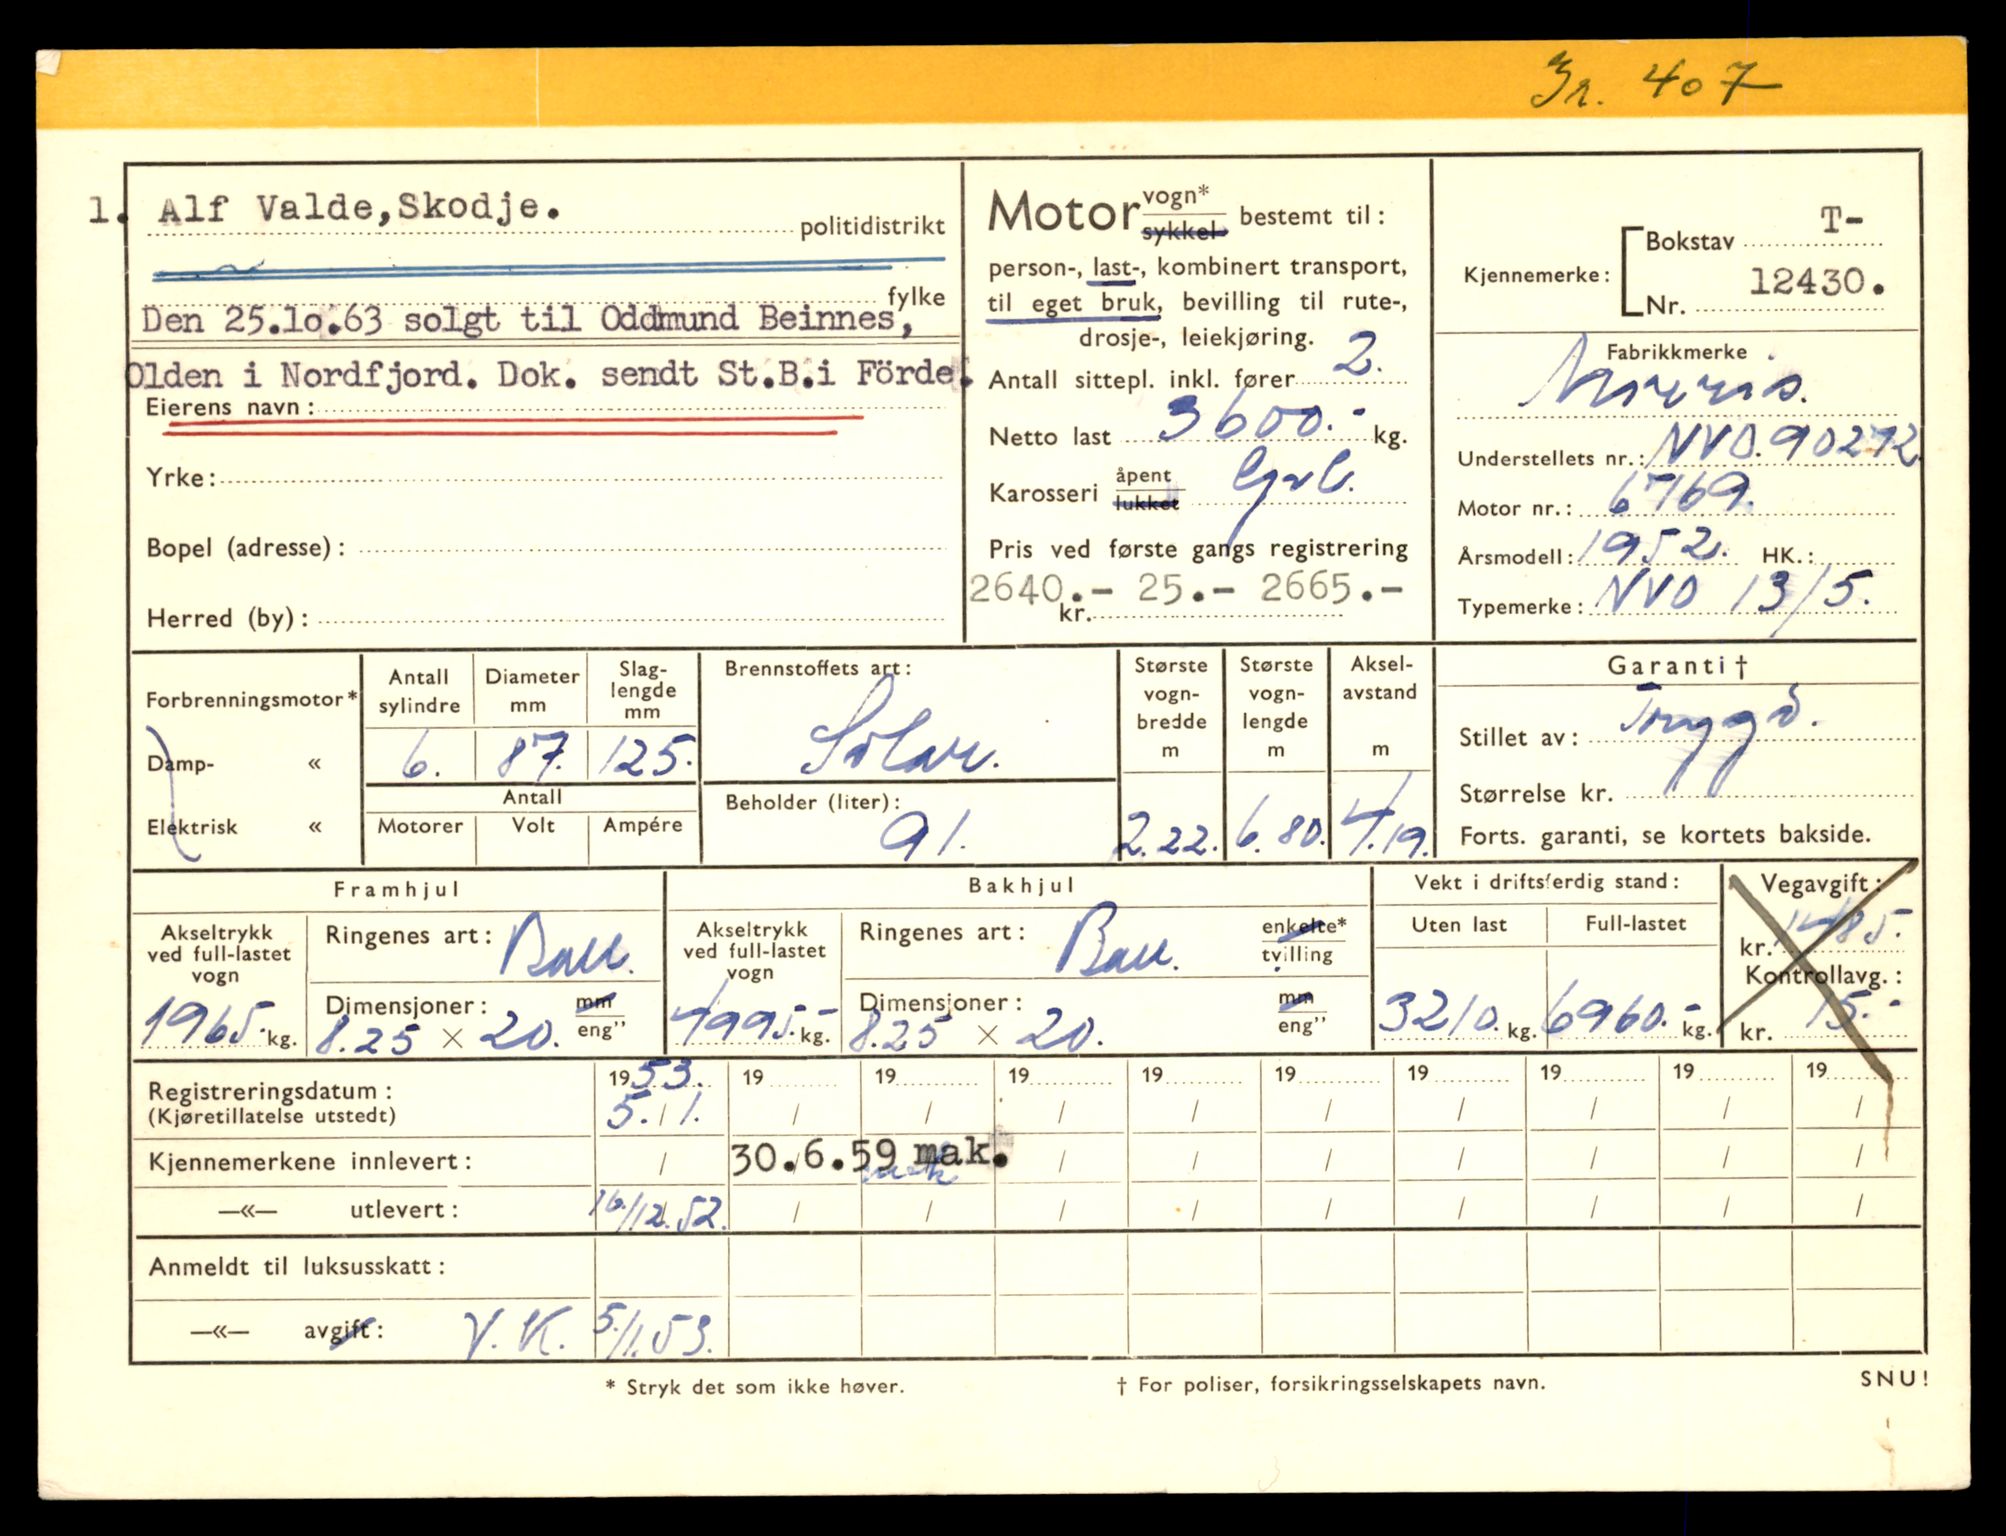 Gr. 407
1. Alf Valde, Skodje.
politidistrikt
fylke
Den 25.10.63 solgt til Oddmund Beinnes,
Olden i Nordfjord. Dok. sendt St.B.i Förde.
Eierens navn:
Yrke:
Bopel (adresse):
Herred (by):
Motor vogn* sykkel bestemt til:
person-, last-, kombinert transport,
til eget bruk, bevilling til rute-,
drosje-, leiekjøring.
Antall sittepl. inkl. fører 2.
Netto last 3600.- kg.
Karosseri åpent lukket
Pris ved første gangs registrering
2640.- 25.- 2665.-
kr.
Kjennemerke: Bokstav T-
Nr. 12430.
Fabrikkmerke
Morris.
Understellets nr.: NVO.90272
Motor nr.: 6769.
Årsmodell: 1952. HK.:
Typemerke: NVO 13/5.
Forbrenningsmotor*
Damp- «
Elektrisk «
Antall sylindre Diameter mm Slag-lengde mm
6. 87. 125.
Antall
Motorer Volt Ampére
Brennstoffets art:
Solar.
Beholder (liter):
91.
Største vogn-bredde m Største vogn-lengde m Aksel-avstand m
2.22. 6.80. 4.19.
Garanti†
Stillet av: Trygd.
Størrelse kr.
Forts. garanti, se kortets bakside.
Framhjul
Akseltrykk ved full-lastet vogn
1965.- kg.
Ringenes art: Ball.
Dimensjoner: mm eng”
8.25 × 20.
Bakhjul
Akseltrykk ved full-lastet vogn
4995.- kg.
Ringenes art: Ball. enkelte* tvilling
Dimensjoner: mm eng”
8.25 × 20.
Vekt i driftsferdig stand:
Uten last Full-lastet
3210. kg. 6960.- kg.
Vegavgift:
kr. 1485.-
Kontrollavg.:
kr. 15.-
Registreringsdatum: 1953. 19 19 19 19 19 19 19 19 19
(Kjøretillatelse utstedt) 5./1. / / / / / / / / /
Kjennemerkene innlevert: / 30.6.59 mak. / / / / / / /
—«— utlevert: 16./12.52. / / / / / / / / /
Anmeldt til luksusskatt:
—«— avgift: V.K. 5/1.53.
* Stryk det som ikke høver.
† For poliser, forsikringsselskapets navn.
SNU!